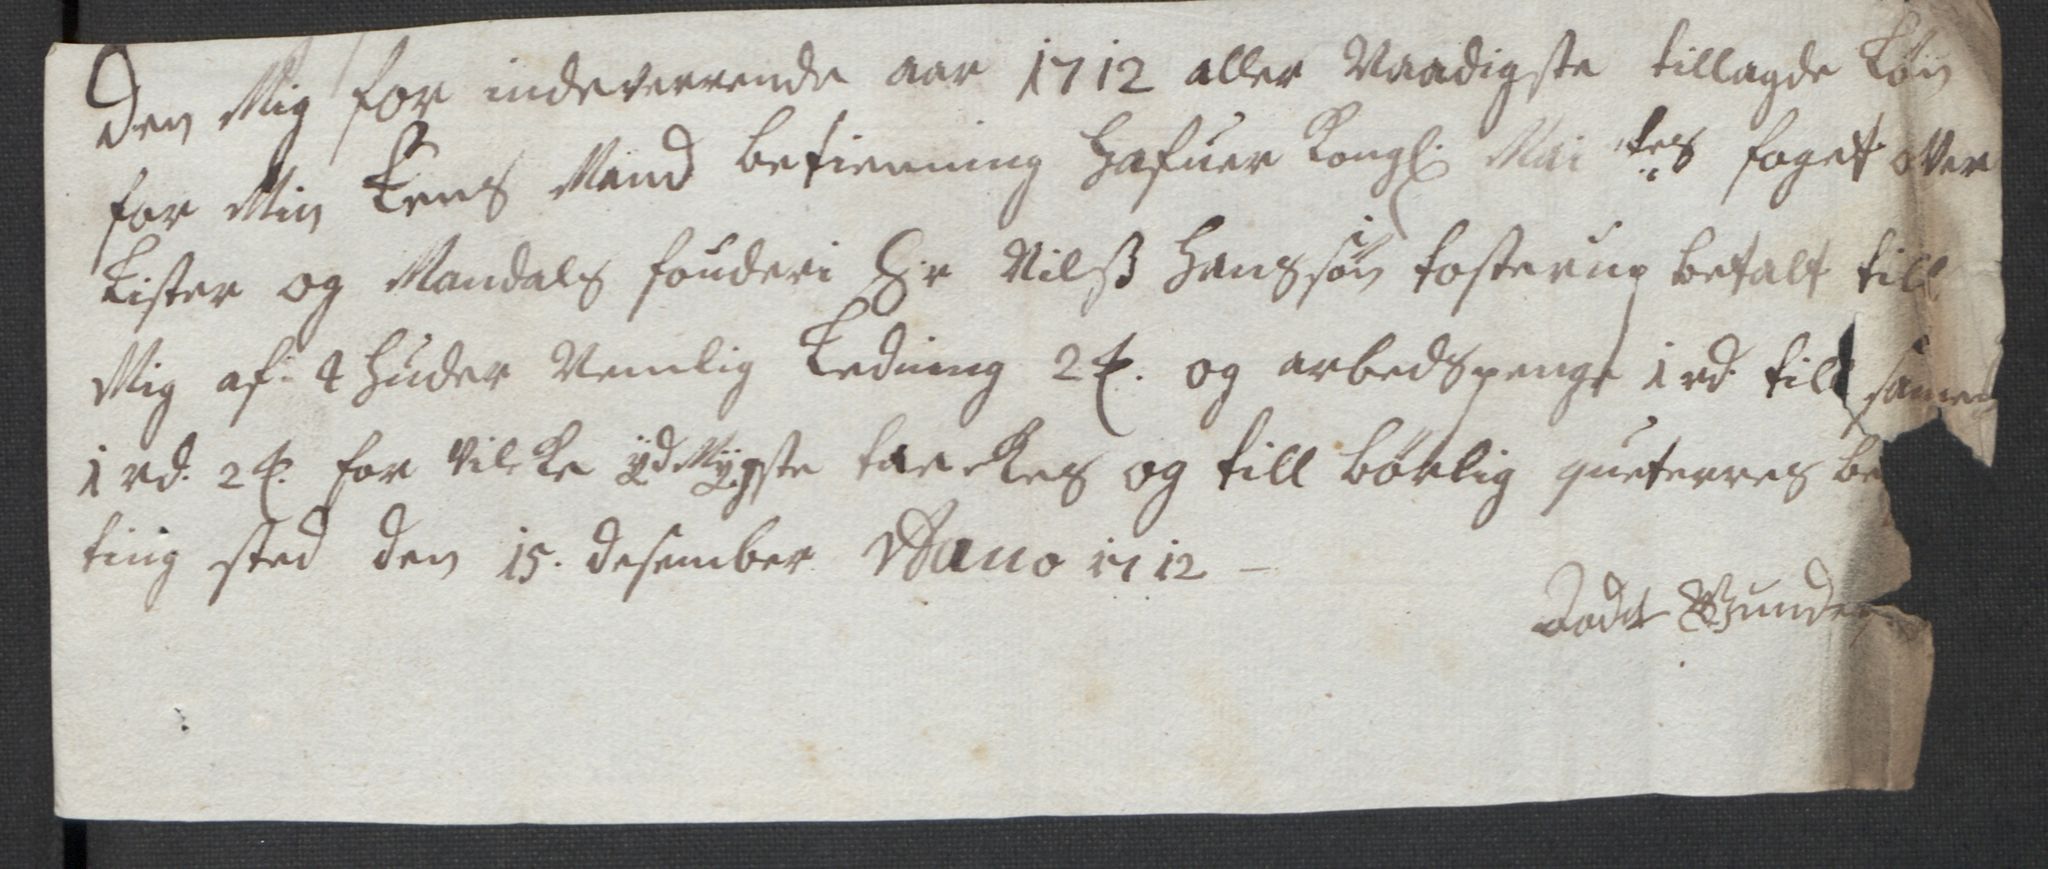 Den Mig for indeverrende aar 1712 aller Naadigste tillagde Løn
for Min Lens Mand betienning hafuer Kongl: Mai tes foget over
Lister og Mandals fouderi Sr Nilß Hanssøn tosterup betalt till
Mig af 4 huder Nemlig Ledning 2 og arbedspenge 1 rd till samen
1 rd. 2 for vilcke ÿdMÿgste tackes og till børlig queterres
ting sted den 15. desember Anno 1712 –
Wunde